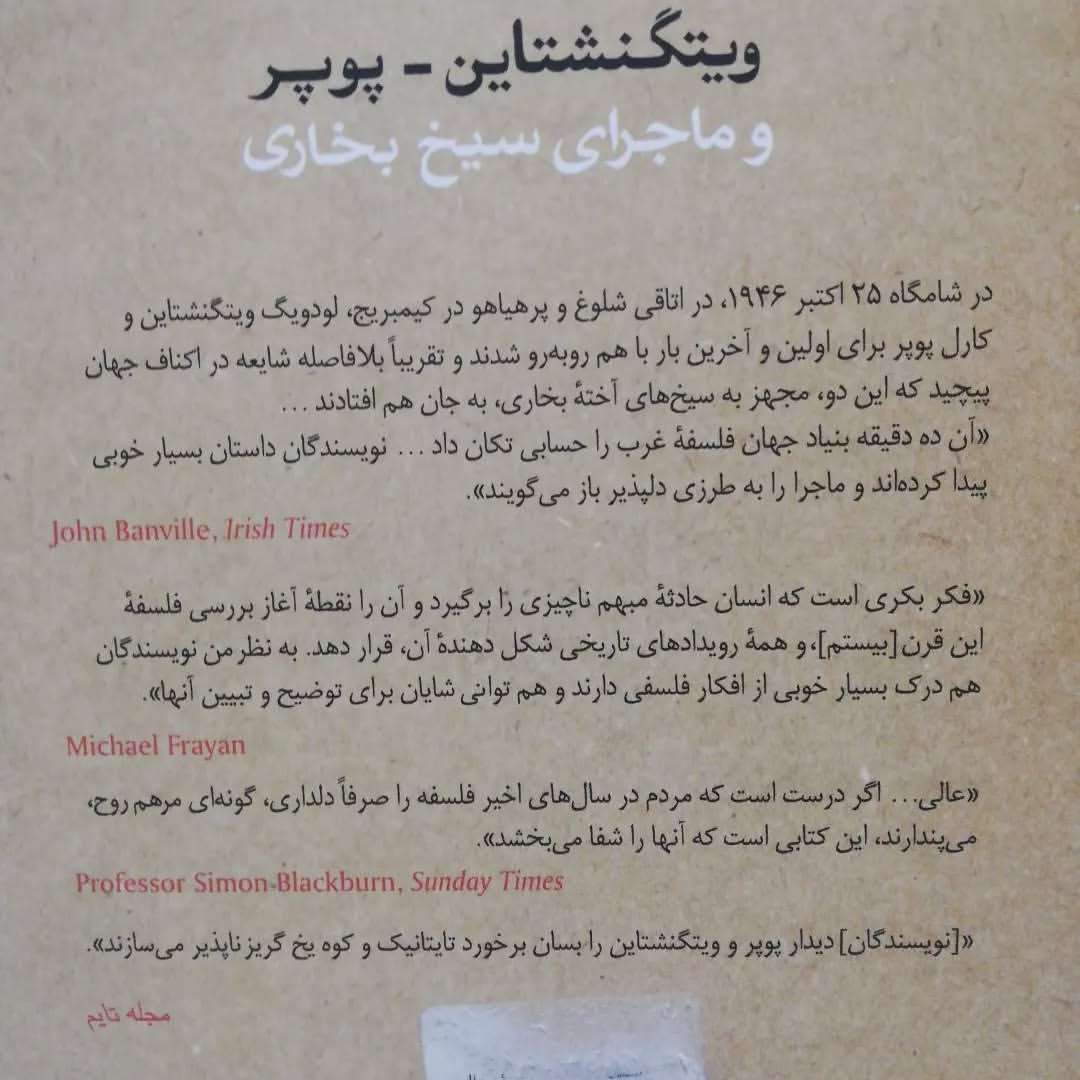 ویتگنشتاین - پوپر
و ماجرای سیخ بخاری
در شامگاه ۲۵ اکتبر ۱۹۴۶، در اتاقی شلوغ و پرهیاهو در کیمبریج، لودویگ ویتگنشتاین و
کارل پوپر برای اولین و آخرین بار با هم روبه‌رو شدند و تقریباً بلافاصله شایعه در اکناف جهان
پیچید که این دو، مجهز به سیخ‌های آختهٔ بخاری، به جان هم افتادند ...
«آن ده دقیقه بنیاد جهان فلسفهٔ غرب را حسابی تکان داد ... نویسندگان داستان بسیار خوبی
پیدا کرده‌اند و ماجرا را به طرزی دلپذیر باز می‌گویند».
John Banville, Irish Times
«فکر بکری است که انسان حادثهٔ مبهم ناچیزی را برگیرد و آن را نقطهٔ آغاز بررسی فلسفهٔ
این قرن [بیستم]، و همهٔ رویدادهای تاریخی شکل دهندهٔ آن، قرار دهد. به نظر من نویسندگان
هم درک بسیار خوبی از افکار فلسفی دارند و هم توانی شایان برای توضیح و تبیین آنها».
Michael Frayan
«عالی... اگر درست است که مردم در سال‌های اخیر فلسفه را صرفاً دلداری، گونه‌ای مرهم روح،
می‌پندارند، این کتابی است که آنها را شفا می‌بخشد».
Professor Simon Blackburn, Sunday Times
«[نویسندگان] دیدار پوپر و ویتگنشتاین را بسان برخورد تایتانیک و کوه یخ گریزناپذیر می‌سازند».
مجله تایم